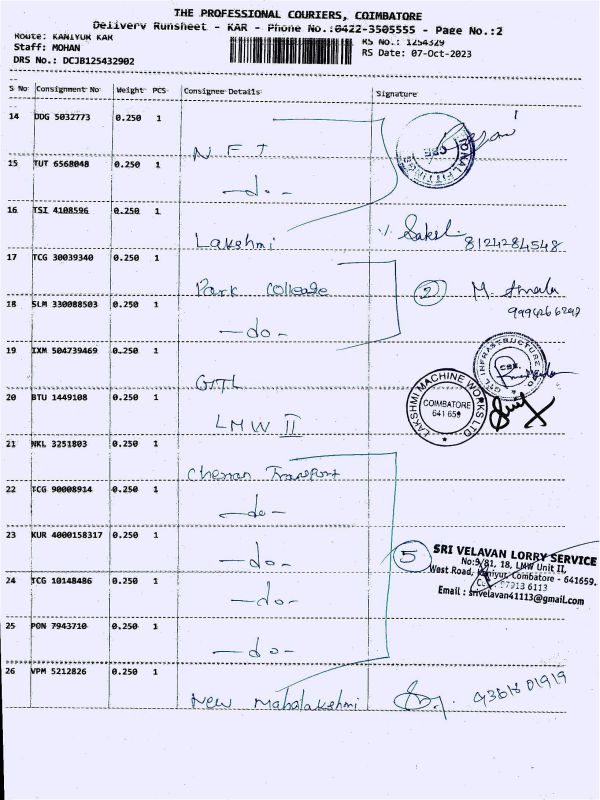 THE PROFESSIONAL COURIERS, COIMBATORE
Delivery Runsheet - KAR - Phone No.:0422-3505555 - Page No.:2
Route: KANIYUR KAR
RS No.: 1254329
Staff: MOHAN
RS Date: 07-Oct-2023
DRS No.: DCJB125432902
S No Consignment No Weight PCS Consignee Details Signature
14 DDG 5032773 0.250 1
N F I
15 TUT 6568048 0.250 1
-do-
16 TSI 4108596 0.250 1
Lakshmi
8124284548
17 TCG 30039340 0.250 1
Park College
2 M.
18 SLM 330088503 0.250 1
-do-
19 IXM 504739469 0.250 1
GTL
GTL INFRASTRUCTURE
CBE.
20 BTU 1449108 0.250 1
LMW II
LAKSHMI MACHINE WORKS LTD
COIMBATORE
641 659
21 NKL 3251803 0.250 1
Cheran Transport
22 TCG 90008914 0.250 1
-do-
23 KUR 4000158317 0.250 1
-do-
5
SRI VELAVAN LORRY SERVICE
No:9/81, 18, LMW Unit II,
West Road, Kaniyur, Coimbatore - 641659.
97913 6113
Email : srivelavan41113@gmail.com
24 TCG 10148486 0.250 1
-do-
25 PON 7943710 0.250 1
-do-
26 VPM 5212826 0.250 1
New Mahalakshmi